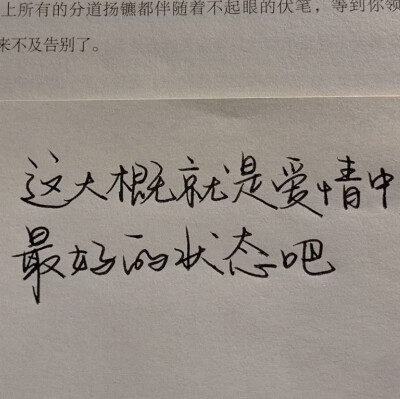 上所有的分道扬镳都伴随着不起眼的伏笔，等到你领
来不及告别了。
这大概就是爱情中
最好的状态吧